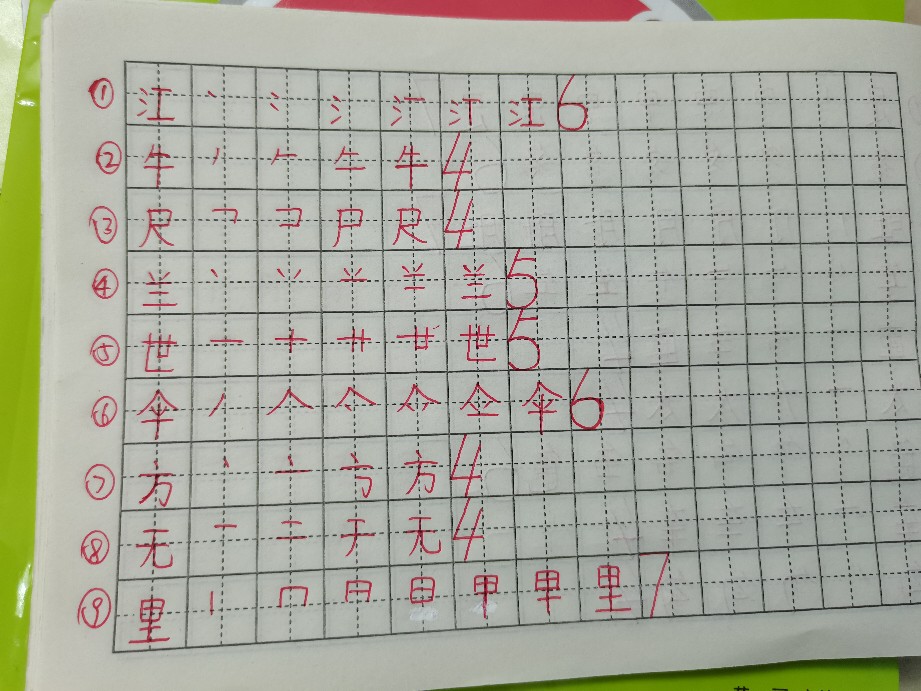 ① 江 丶 冫 氵 江 6
② 牛 丿 𠂉 牛 4
③ 尺 ㇕ コ 尸 尺 4
④ 兰 丶 丷 䒑 兰 5
⑤ 世 一 十 廿 世 5
⑥ 伞 丿 人 伞 6
⑦ 方 丶 亠 方 4
⑧ 无 一 二 无 4
⑨ 里 丨 冂 日 甲 里 7